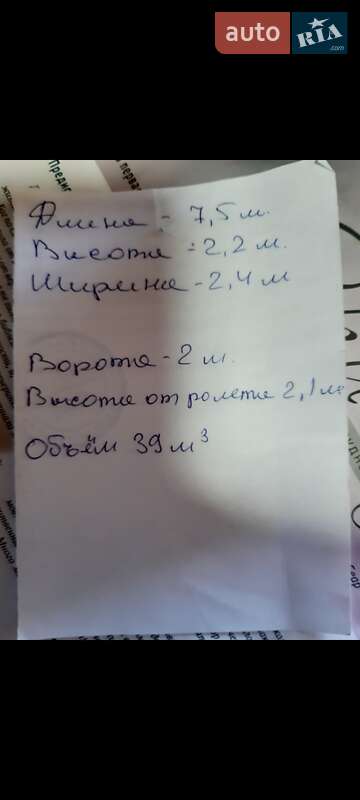 auto
RIA
.com
Длина - 7,5 м.
Висота - 2,2 м.
Ширина - 2,4 м
Ворота - 2 м.
Высота от ролета 2,1 м.
Объём 39 м³